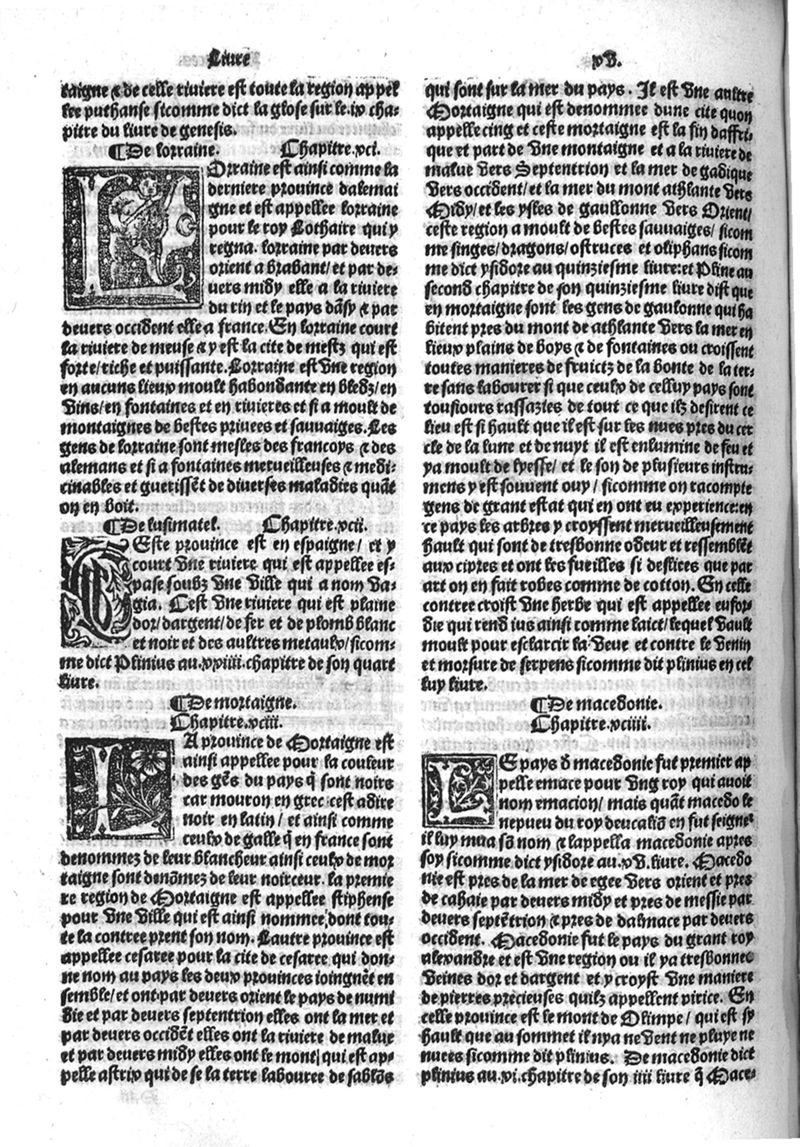 Livre
xv.
taigne & de celle riviere est toute la region appel
lee puthanse sicomme dict la glose sur le.ix cha-
pitre du livre de genesis.
¶De lorraine. Chapitre.xci.
LOrraine est ainsi comme la
derniere province dalemai
gne et est appellee lorraine
pour le roy Lothaire qui y
regna. lorraine par devers
orient a brabant/et par de-
vers midy elle a la riviere
du rin et le pays dãsy & par
devers occident elle a france. En lorraine court
la riviere de meuse & y est la cite de mestz qui est
forte/riche et puissante. Lorraine est vne region
en aucuns lieux moult habondante en bledz/en
vins/en fontaines et en rivieres et si a moult de
montaignes de bestes privees et sauvaiges. Les
gens de lorraine sont mesles des francoys & des
alemans et si a fontaines merveilleuses & medi-
cinables et guerissẽt de diverses maladies quãt
on en boit.
¶De lusimatel. Chapitre.xcii.
CEste province est en espaigne/ et y
court vne riviere qui est appellee es-
pase soubz vne ville qui a nom va-
gia. Cest vne riviere qui est plaine
dor/dargent/de fer et de plomb blanc
et noir et des aultres metaulx/sicom-
me dict Plinius au.xxiiii.chapitre de son quart
livre.
¶De mortaigne.
Chapitre.xciii.
LA province de Mortaigne est
ainsi appellee pour la couleur
des gẽs du pays q̃ sont noirs
car mouron en grec cest adire
noir en latin/ et ainsi comme
ceulx de galle q̃ en france sont
denommez de leur blancheur ainsi ceulx de mor
taigne sont denõmez de leur noirceur. la premie
re region de Mortaigne est appellee stiphense
pour vne ville qui est ainsi nommee/dont tou-
te la contree prent son nom. Lautre province est
appellee cesaree pour la cite de cesaree qui don-
ne nom au pays les deux provinces ioingnẽt en
semble/et ont par devers orient le pays de numi
die et par devers septentrion elles ont la mer et
par devers occidẽt elles ont la riviere de malue
et par devers midy elles ont le mont/qui est ap-
pelle astrix qui de se la terre labouree de sablõs
qui sont sur la mer du pays. Il est vne aultre
Mortaigne qui est denommee dune cite quon
appelle cing et ceste mortaigne est la fin daffri-
que et part de vne montaigne et a la riviere de
malue vers Septentrion et la mer de gadique
vers occident/et la mer du mont athlante vers
Midy/et les ysles de gaullonne vers Orient/
ceste region a moult de bestes sauvaiges/sicom
me singes/dragons/ostruces et oliphans sicom
me dict ysidore au quinziesme livre:et Pline au
second chapitre de son quinziesme livre dist que
en mortaigne sont les gens de gaulonne qui ha
bitent pres du mont de athlante vers la mer en
lieux plains de boys & de fontaines ou croissent
toutes manieres de fruictz de la bonte de la ter-
re sans labourer si que ceulx de celluy pays sont
tousiours rassazies de tout ce que ilz desirent ce
lieu est si hault que il est sur les nues pres du cer
cle de la lune et de nuyt il est enlumine de feu et
ya moult de lyesse/ et le son de plusieurs instru-
mens y est souvent ouy/sicomme on racompte
gens de grant estat qui en ont eu experience:en
ce pays les arbres y croyssent merveilleusement
hault qui sont de tresbonne odeur et ressemblẽt
aux cipres et ont les fueilles si deslices que par
art on en fait robes comme de cotton. En celle
contree croist vne herbe qui est appellee eufor-
die qui rend ius ainsi comme laict/lequel vault
moult pour esclarcir la veue et contre le venin
et morsure de serpens sicomme dit plinius en cel
luy livre.
¶De macedonie.
Chapitre.xciiii.
LE pays d̃ macedonie fut premier ap
pelle emace pour vng roy qui avoit
nom emacion/ mais quãt macedo le
nepueu du roy deucaliõ en fut seigne'
il luy mua sõ nom & lappella macedonie apres
soy sicomme dict ysidore au.xv.livre. Macedo
nie est pres de la mer de egee vers orient et pres
de cahaie par devers midy et pres de messie par
devers septẽtrion & pres de dalmace par devers
occident. Macedonie fut le pays du grant roy
alexandre et est vne region ou il ya tresbonnes
veines dor et dargent et y croyst vne maniere
de pierres precieuses quilz appellent pirice. En
celle province est le mont de Olimpe/qui est sy
hault que au sommet il nya ne vent ne pluye ne
nuees sicomme dit plinius. De macedonie dict
plinius au.vi.chapitre de son iiii livre q̃ Mace-